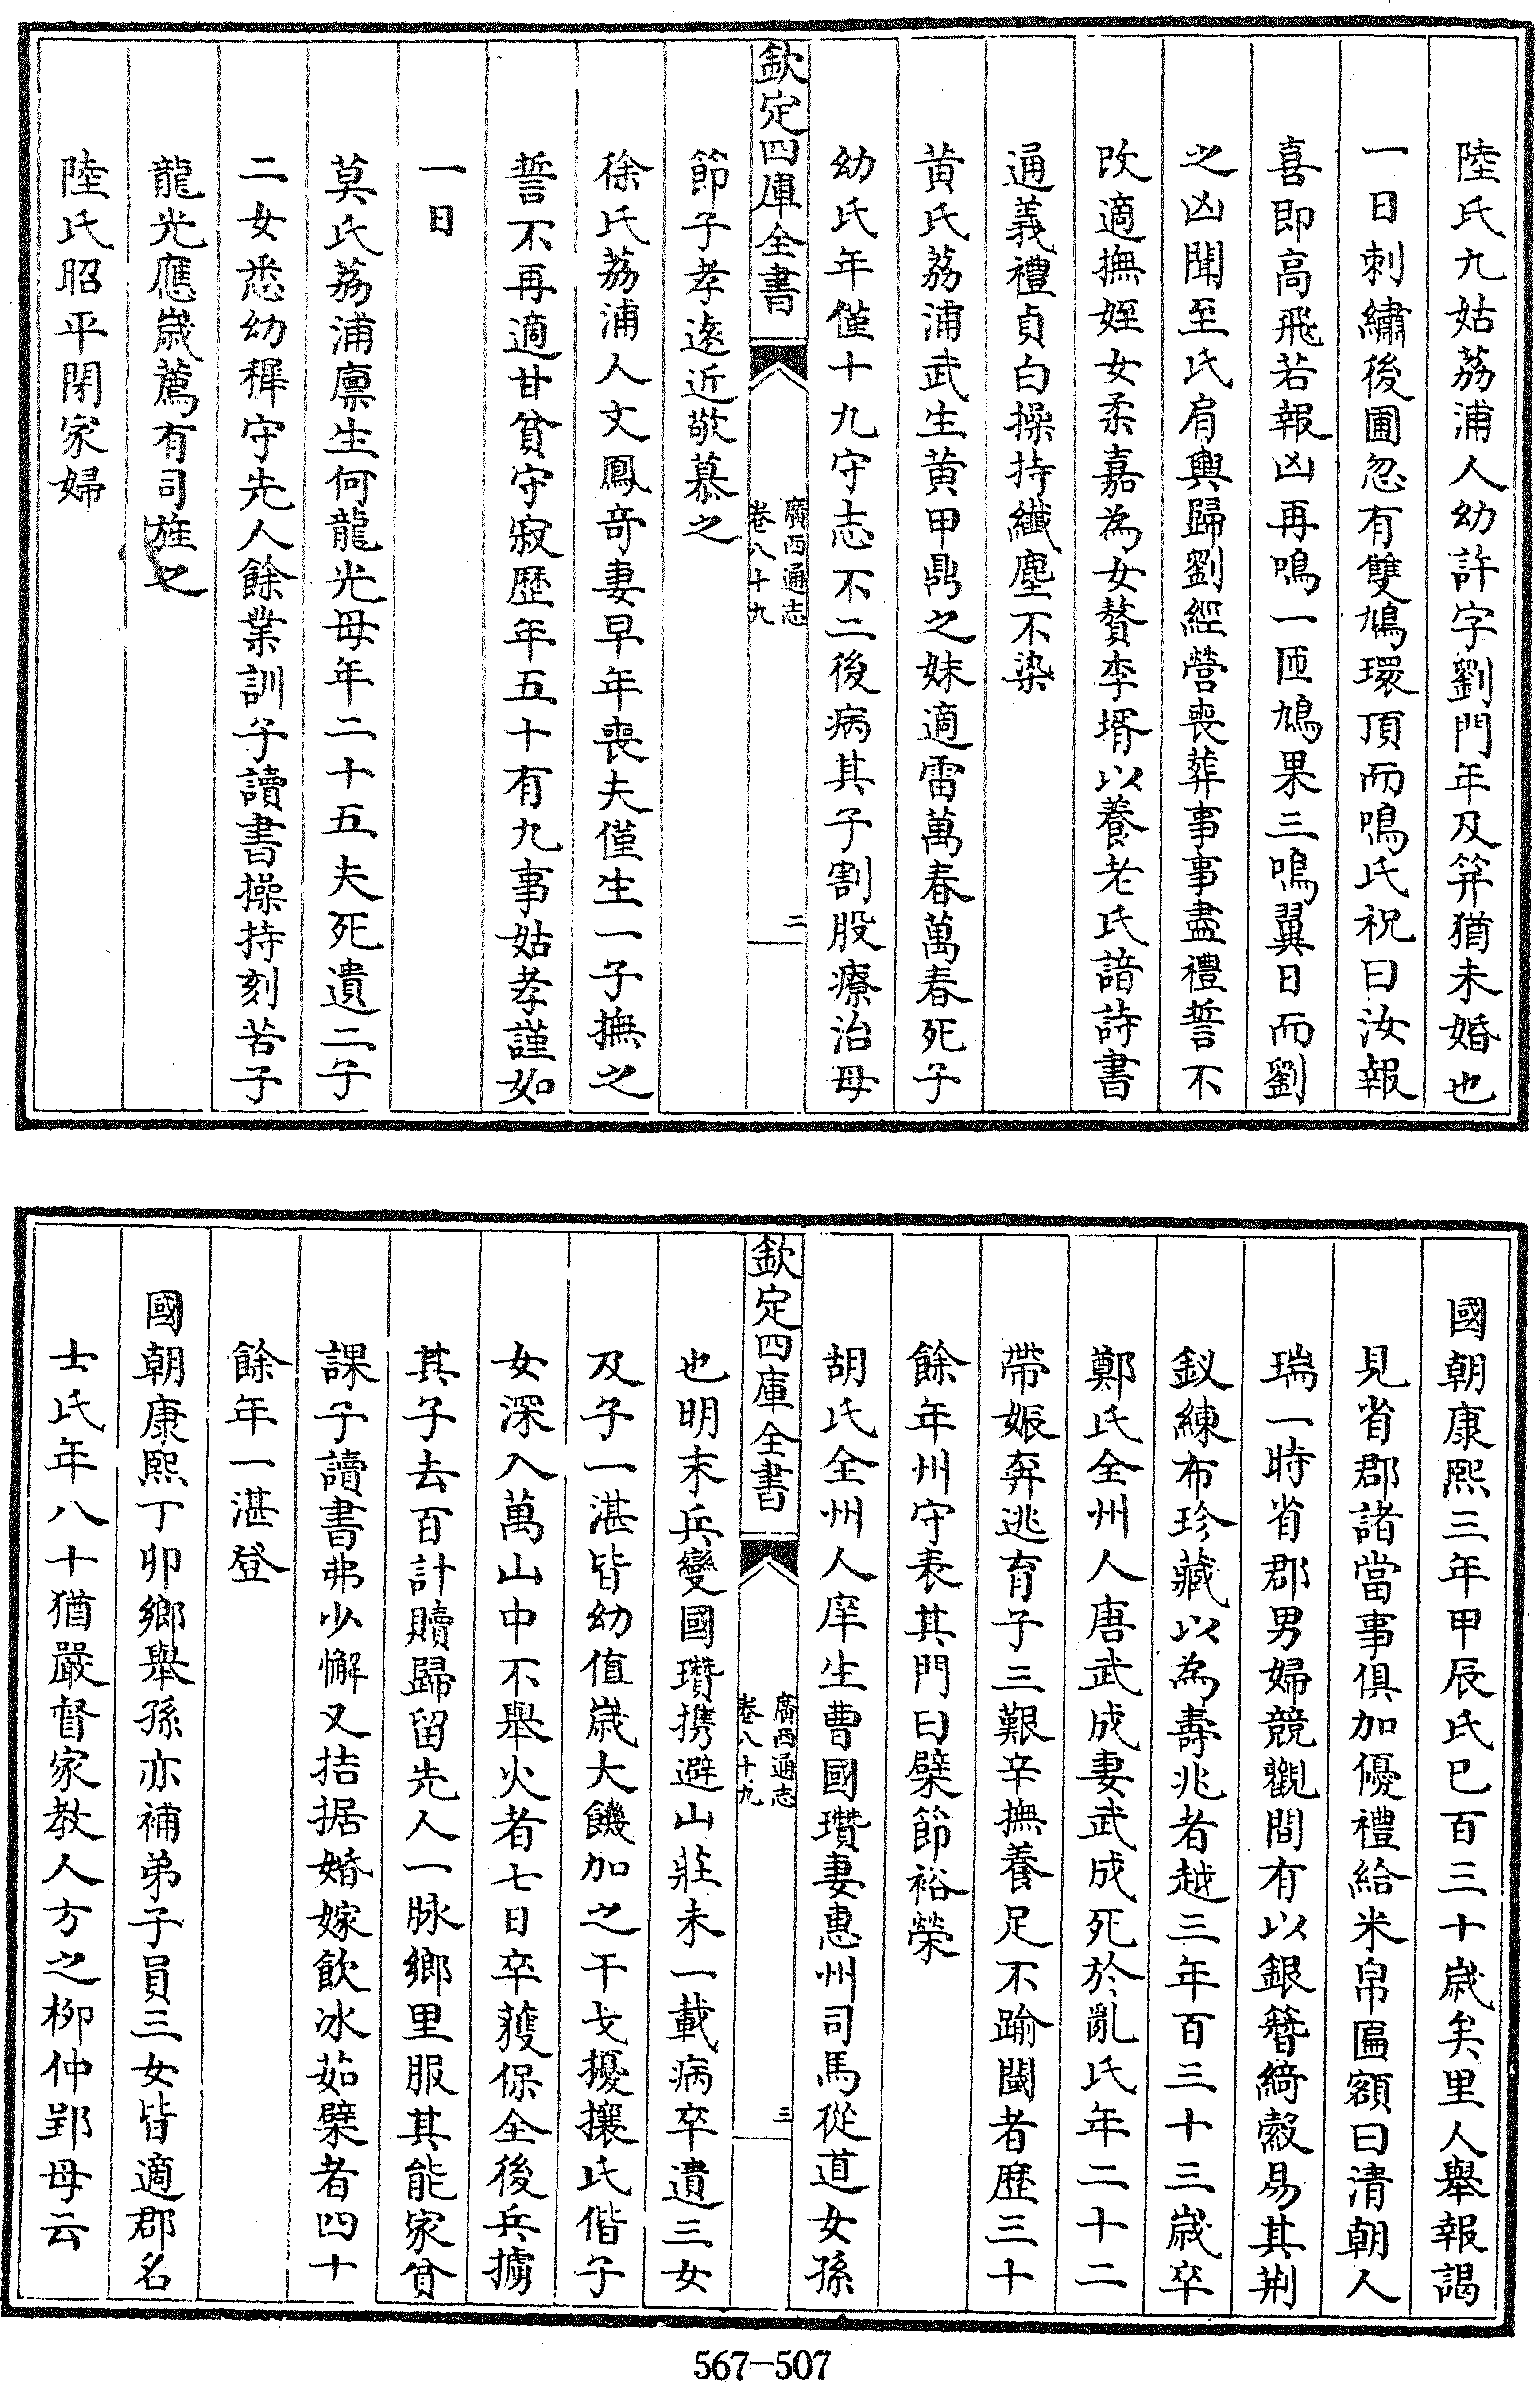 陸氏九姑荔浦人幼許字劉門年及笄猶未婚也
一日刺繡後圃忽有雙鳩環頂而鳴氏祝曰汝報
喜即高飛若報凶再鳴一匝鳩果三鳴翼日而劉
之凶聞至氏肩輿歸劉經營喪葬事事盡禮誓不
改適撫姪女柔嘉為女贅李壻以養老氏諳詩書
通義禮貞白操持纖塵不染
黄氏荔浦武生黄甲鼎之妹適雷萬春萬春死子
幼氏年僅十九守志不二後病其子割股療治母
欽定四庫全書
廣西通志
卷八十九
二
節子孝逺近敬慕之
徐氏荔浦人文鳳竒妻早年喪夫僅生一子撫之
誓不再適甘貧守寂歴年五十有九事姑孝謹如
一日
莫氏荔浦廪生何龍光母年二十五夫死遺二子
二女悉幼穉守先人餘業訓子讀書操持刻苦子
龍光應歲薦有司旌之
陸氏昭平閑家婦
國朝康熙三年甲辰氏已百三十歲矣里人舉報謁
見省郡諸當事俱加優禮給米帛匾額曰清朝人
瑞一時省郡男婦競觀間有以銀簪綺縠易其荆
釵練布珍藏以為壽兆者越三年百三十三歲卒
鄭氏全州人唐武成妻武成死於亂氏年二十二
帶娠奔逃育子三艱辛撫養足不踰閫者歴三十
餘年州守表其門曰檗節裕榮
胡氏全州人庠生曹國瓚妻惠州司馬從道女孫
欽定四庫全書
廣西通志
卷八十九
三
也明末兵變國瓚携避山莊未一載病卒遺三女
及子一湛皆幼值歲大饑加之干戈擾攘氏偕子
女深入萬山中不舉火者七日卒獲保全後兵擄
其子去百計贖歸留先人一脉鄉里服其能家貧
課子讀書弗少懈又拮据婚嫁飲冰茹檗者四十
餘年一湛登
國朝康熙丁卯鄉舉孫亦補弟子員三女皆適郡名
士氏年八十猶嚴督家教人方之柳仲郢母云
567-507